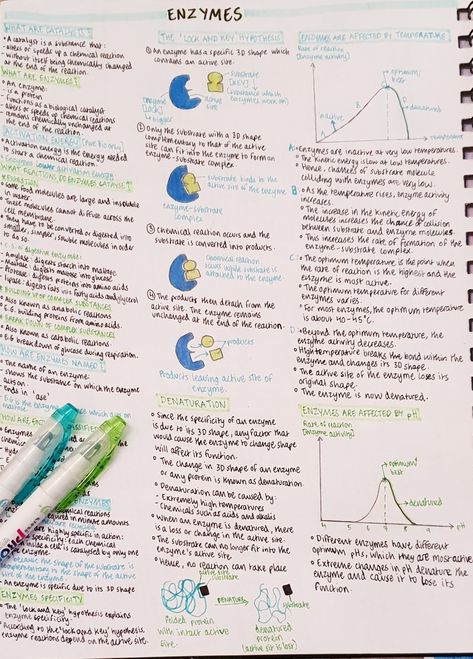 ENZYMES
WHAT ARE CATALYSTS
• A catalyst is a substance that:
- alters or speeds up a chemical reaction
- without itself being chemically changed
at the end of the reaction.
WHAT ARE ENZYMES
• An enzyme:
- is a protein
- functions as a biological catalyst
- alters or speeds up chemical reactions
- remains chemically unchanged at
the end of the reaction.
ACTIVATION ENERGY
• Activation energy is the energy needed
to start a chemical reaction.
WHAT REACTIONS DO ENZYMES CATALYSE
DIGESTION
• Some food molecules are large and insoluble
in water.
• These molecules cannot diffuse across the
cell membrane.
• They have to be converted or digested into
smaller, simpler, soluble molecules in order
to do so.
• E.g. of digestive enzymes:
- Amylase: digests starch into maltose.
- Maltase: digests maltose into glucose.
- Protease: digests proteins into amino acids
- Lipase: digests fats into fatty acids and glycerol
BUILDING UP COMPLEX SUBSTANCES
• Also known as anabolic reactions.
• E.g. building proteins from amino acids.
BREAK DOWN OF COMPLEX SUBSTANCES
• Also known as catabolic reactions.
• E.g. break down of glucose during respiration.
HOW ARE ENZYMES NAMED
• The name of an enzyme:
- shows the substance on which the enzyme
acts on.
- Ends in 'ase'
chemical reactions
required in minute amounts
are highly specific in action.
specificity: each chemical
inside a cell is catalysed by only one
enzyme.
enzyme is specific due to its 3D shape
ENZYMES SPECIFICITY
• The 'lock and key' hypothesis explains
enzyme specificity.
• According to the 'lock and key' hypothesis
enzyme reactions depend on the active site.
THE 'LOCK AND KEY' HYPOTHESIS
① An enzyme has a specific 3D shape which
contains an active site.
substrate
[KEY]
(substance which
the enzymes work on)
enzyme
[LOCK]
↳ bigger
active
site
② Only the substrate with a 3D shape
complementary to that of the active
site can fit into the enzyme to form an
enzyme-substrate complex.
substrate binds to the
active site of the enzyme
enzyme-substrate
complex
③ Chemical reaction occurs and the
substrate is converted into products.
chemical reaction
occurs while substrate is
attached to the enzyme
④ The products then detach from the
active site. The enzyme remains
unchanged at the end of the reaction.
products
Products leaving active site of
enzyme.
DENATURATION
• Since the specificity of an enzyme
is due to its 3D shape, any factor that
would cause the enzyme to change shape
will affect its function.
• The change in 3D shape of an enzyme
or any protein is known as denaturation.
• Denaturation can be caused by:
- Extremely high temperatures
- Chemicals such as acids and alkalis
• When an enzyme is denatured, there
is a loss or change in the active site.
• The substrate can no longer fit into the
enzyme's active site.
• Hence, no reaction can take place
active site
substrate
DENATURE
substrate
Folded protein
with intact active
site.
denatured
protein
(active site is lost)
ENZYMES ARE AFFECTED BY TEMPERATURE
Rate of reaction
[Enzyme activity]
optimum/
best
inactive
denatured
A
B
C
D
A: • Enzymes are inactive at very low temperatures.
• The kinetic energy is low at low temperatures.
• Hence, chances of substrate molecule
colliding with enzymes are very low.
B: • As the temperature rises, enzyme activity
increases.
• The increase in the kinetic energy of
molecules increases the chance of collision
between substrate and enzyme molecules.
• This increases the rate of formation of the
enzyme-substrate complex.
C: • The optimum temperature is the point when
the rate of reaction is the highest and the
enzyme is most active.
• The optimum temperature for different
enzymes varies.
• For most enzymes, the optimum temperature
is about 40-45°C.
D: • Beyond the optimum temperature, the
enzyme activity decreases.
• High temperature breaks the bond within the
enzyme and changes its 3D shape.
• The active site of the enzyme loses its
original shape.
• The enzyme is now denatured.
ENZYMES ARE AFFECTED BY pH
Rate of reaction
[Enzyme activity]
optimum/
best
denatured
pH
• Different enzymes have different
optimum pHs, which they are most active.
• Extreme changes in pH denature the
enzyme and cause it to lose its
function.